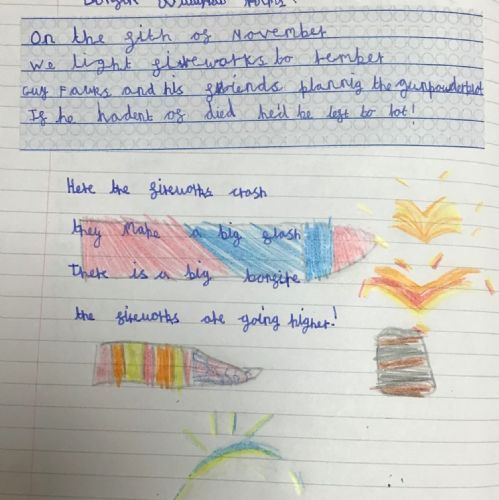 On the fith of November
We light fireworks to rember
Guy Fawks and his friends plannig the gunpowderplot
If he hadent of died he'd be left to rot!
Here the fireworks crash
they Make a big flash
There is a big bonfire
the fireworks are going higher!